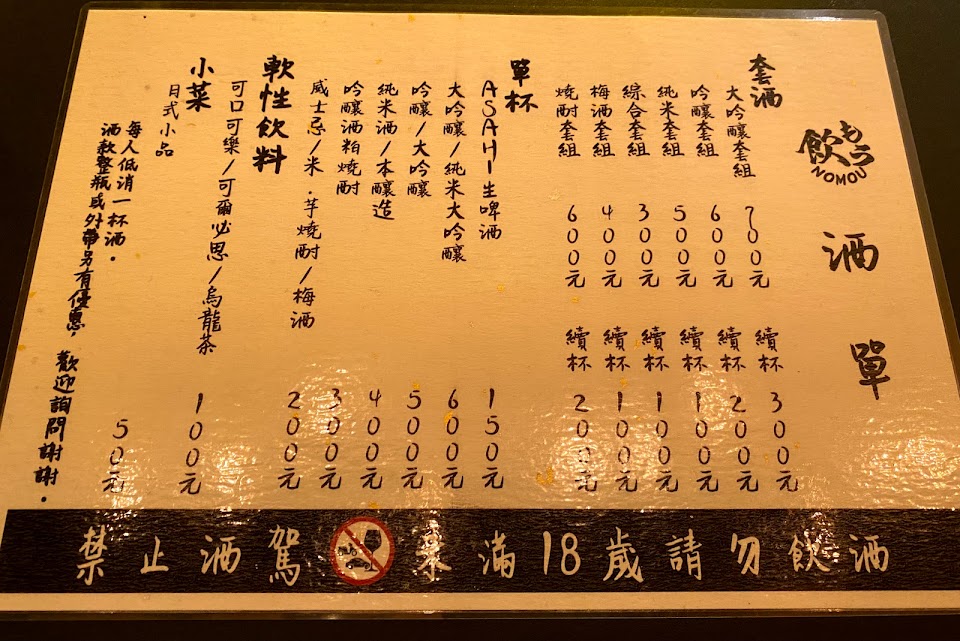 飲もう
NOMOU
酒單
套酒
大吟釀套組 700元 續杯 300元
吟釀套組 600元 續杯 200元
純米套組 500元 續杯 100元
綜合套組 300元 續杯 100元
梅酒套組 400元 續杯 100元
燒酎套組 600元 續杯 200元
單杯
ASAHI生啤酒 150元
大吟釀/純米大吟釀 600元
吟釀/大吟釀 500元
純米酒/本釀造 400元
吟釀酒粕燒酎 300元
威士忌/米．芋燒酎/梅酒 200元
軟性飲料
可口可樂/可爾必思/烏龍茶 100元
小菜
日式小品 50元
每人低消一杯酒。
酒款整瓶或外帶另有優惠，歡迎詢問謝謝。
禁止酒駕 未滿18歲請勿飲酒